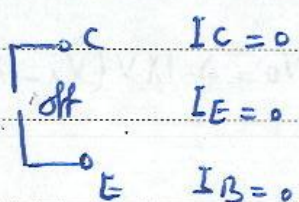 C IC = 0
off IE = 0
E IB = 0